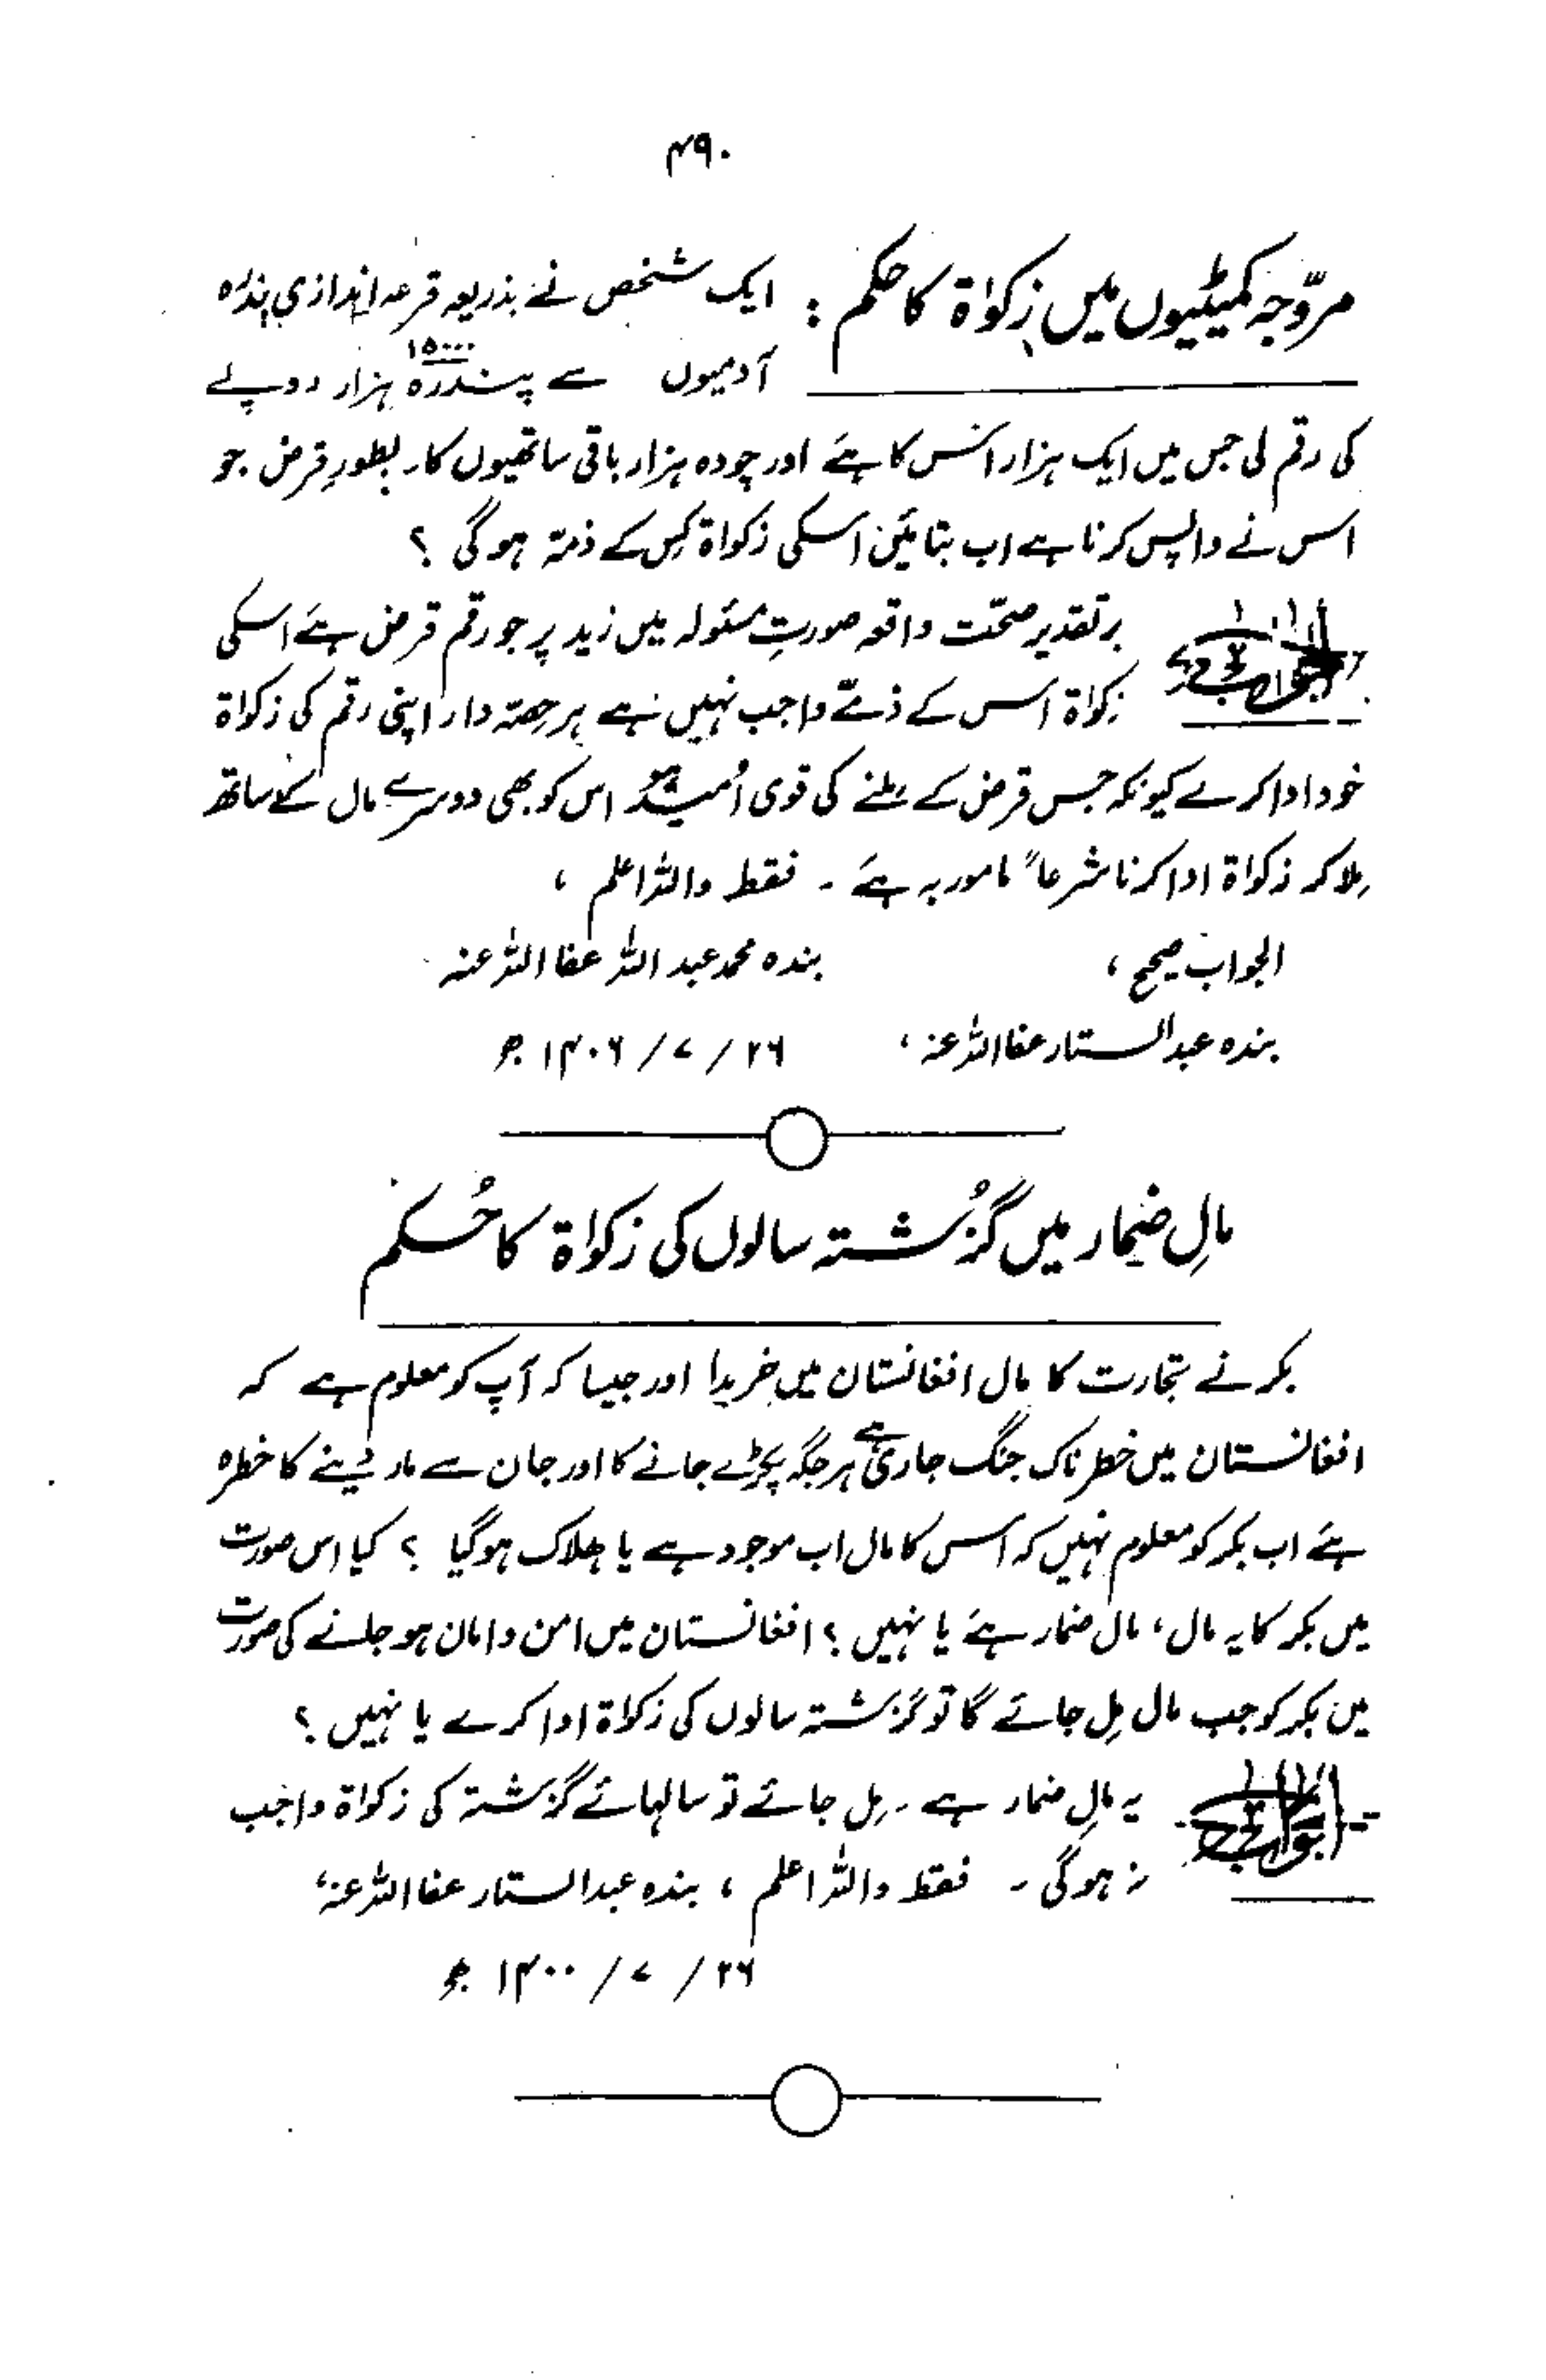 ۴۹۰
مروّجہ کمیٹیوں میں زکوٰۃ کا حکم : ایک شخص نے بذریعہ قرعہ اندازی پندرہ
۱۵۰۰۰
آدمیوں سے پندرہ ہزار روپے
کی رقم لی جس میں ایک ہزار اس کا ہے اور چودہ ہزار باقی ساتھیوں کا۔ بطورِ قرض جو
اس نے واپس کرنا ہے اب بتائیں اسکی زکواۃ کِس کے ذمّہ ہوگی ؟
الجواب برتقدیر صحّت واقعہ صورتِ مسئولہ میں زید پر جو رقم قرض ہے اسکی
زکواۃ اس کے ذمّے واجب نہیں ہے ہر حصّہ دار اپنی رقم کی زکواۃ
خود ادا کرے کیونکہ جس قرض کے ملنے کی قوی اُمید ہو اس کو بھی دوسرے مال کے ساتھ
مِلا کر زکواۃ ادا کرنا شرعاً مامور بہ ہے ۔ فقط واللہ اعلم ،
الجواب صحیح ، بندہ محمد عبداللہ عفا اللہ عنہ
بندہ عبدالستار عفا اللہ عنہ ، ۲۶ / ۷ / ۱۴۰۶ ھ
مالِ ضمار میں گزُشتہ سالوں کی زکواۃ کا حُکم
بکر نے تجارت کا مال افغانستان میں خریدا اور جیسا کہ آپ کو معلوم ہے کہ
افغانستان میں خطرناک جنگ جاری ہے ہر جگہ پکڑے جانے کا اور جان سے مار دینے کا خطرہ
ہے اب بکر کو معلوم نہیں کہ اس کا مال اب موجود ہے یا ھلاک ہوگیا ؟ کیا اس صورت
میں بکر کا یہ مال ، مال ضمار ہے یا نہیں ؟ افغانستان میں امن و امان ہو جانے کی صورت
میں بکر کو جب مال مِل جائے گا تو گزشتہ سالوں کی زکواۃ ادا کرے یا نہیں ؟
الجواب یہ مالِ ضمار ہے ۔ مِل جائے تو سالہائے گزشتہ کی زکواۃ واجب
نہ ہوگی ۔ فقط واللہ اعلم ، بندہ عبدالستار عفا اللہ عنہ ،
۲۶ / ۷ / ۱۴۰۰ ھ